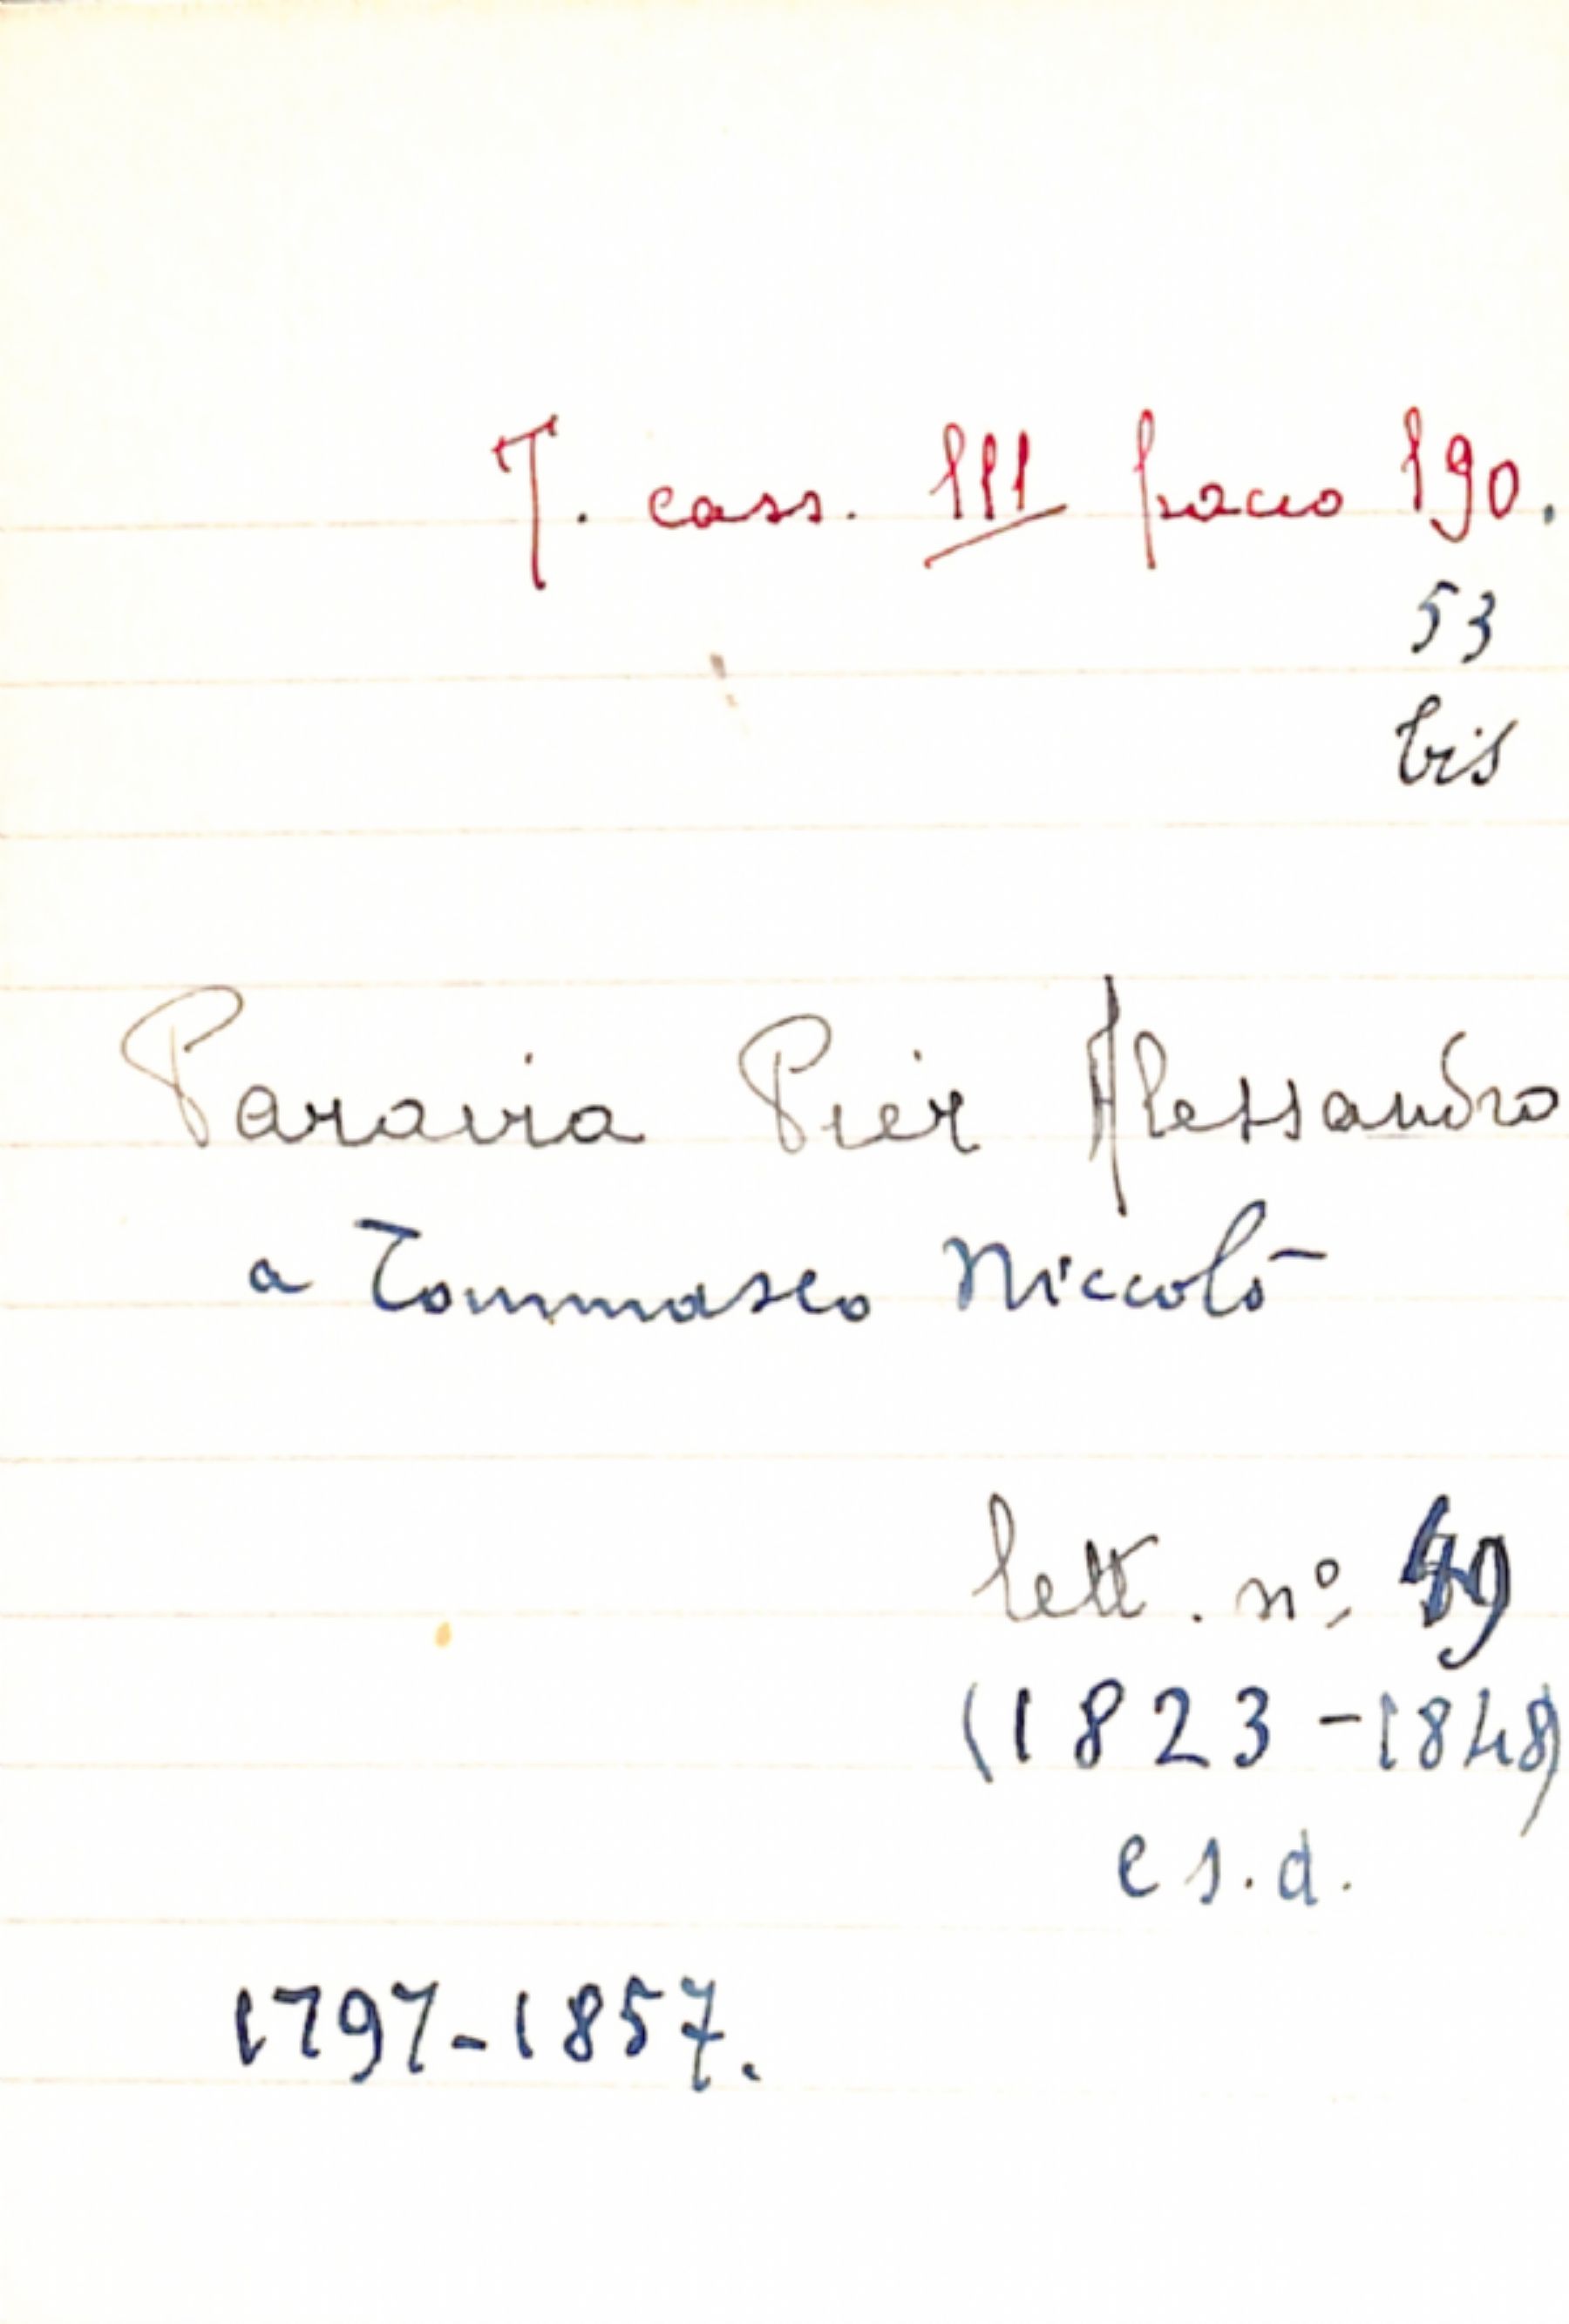 T. cass. III pacco 190.
53
bis
Paravia Pier Alessandro
a Tommaseo Niccolò
lett. nº
(1823-1848)
e s.d.
1797-1857.